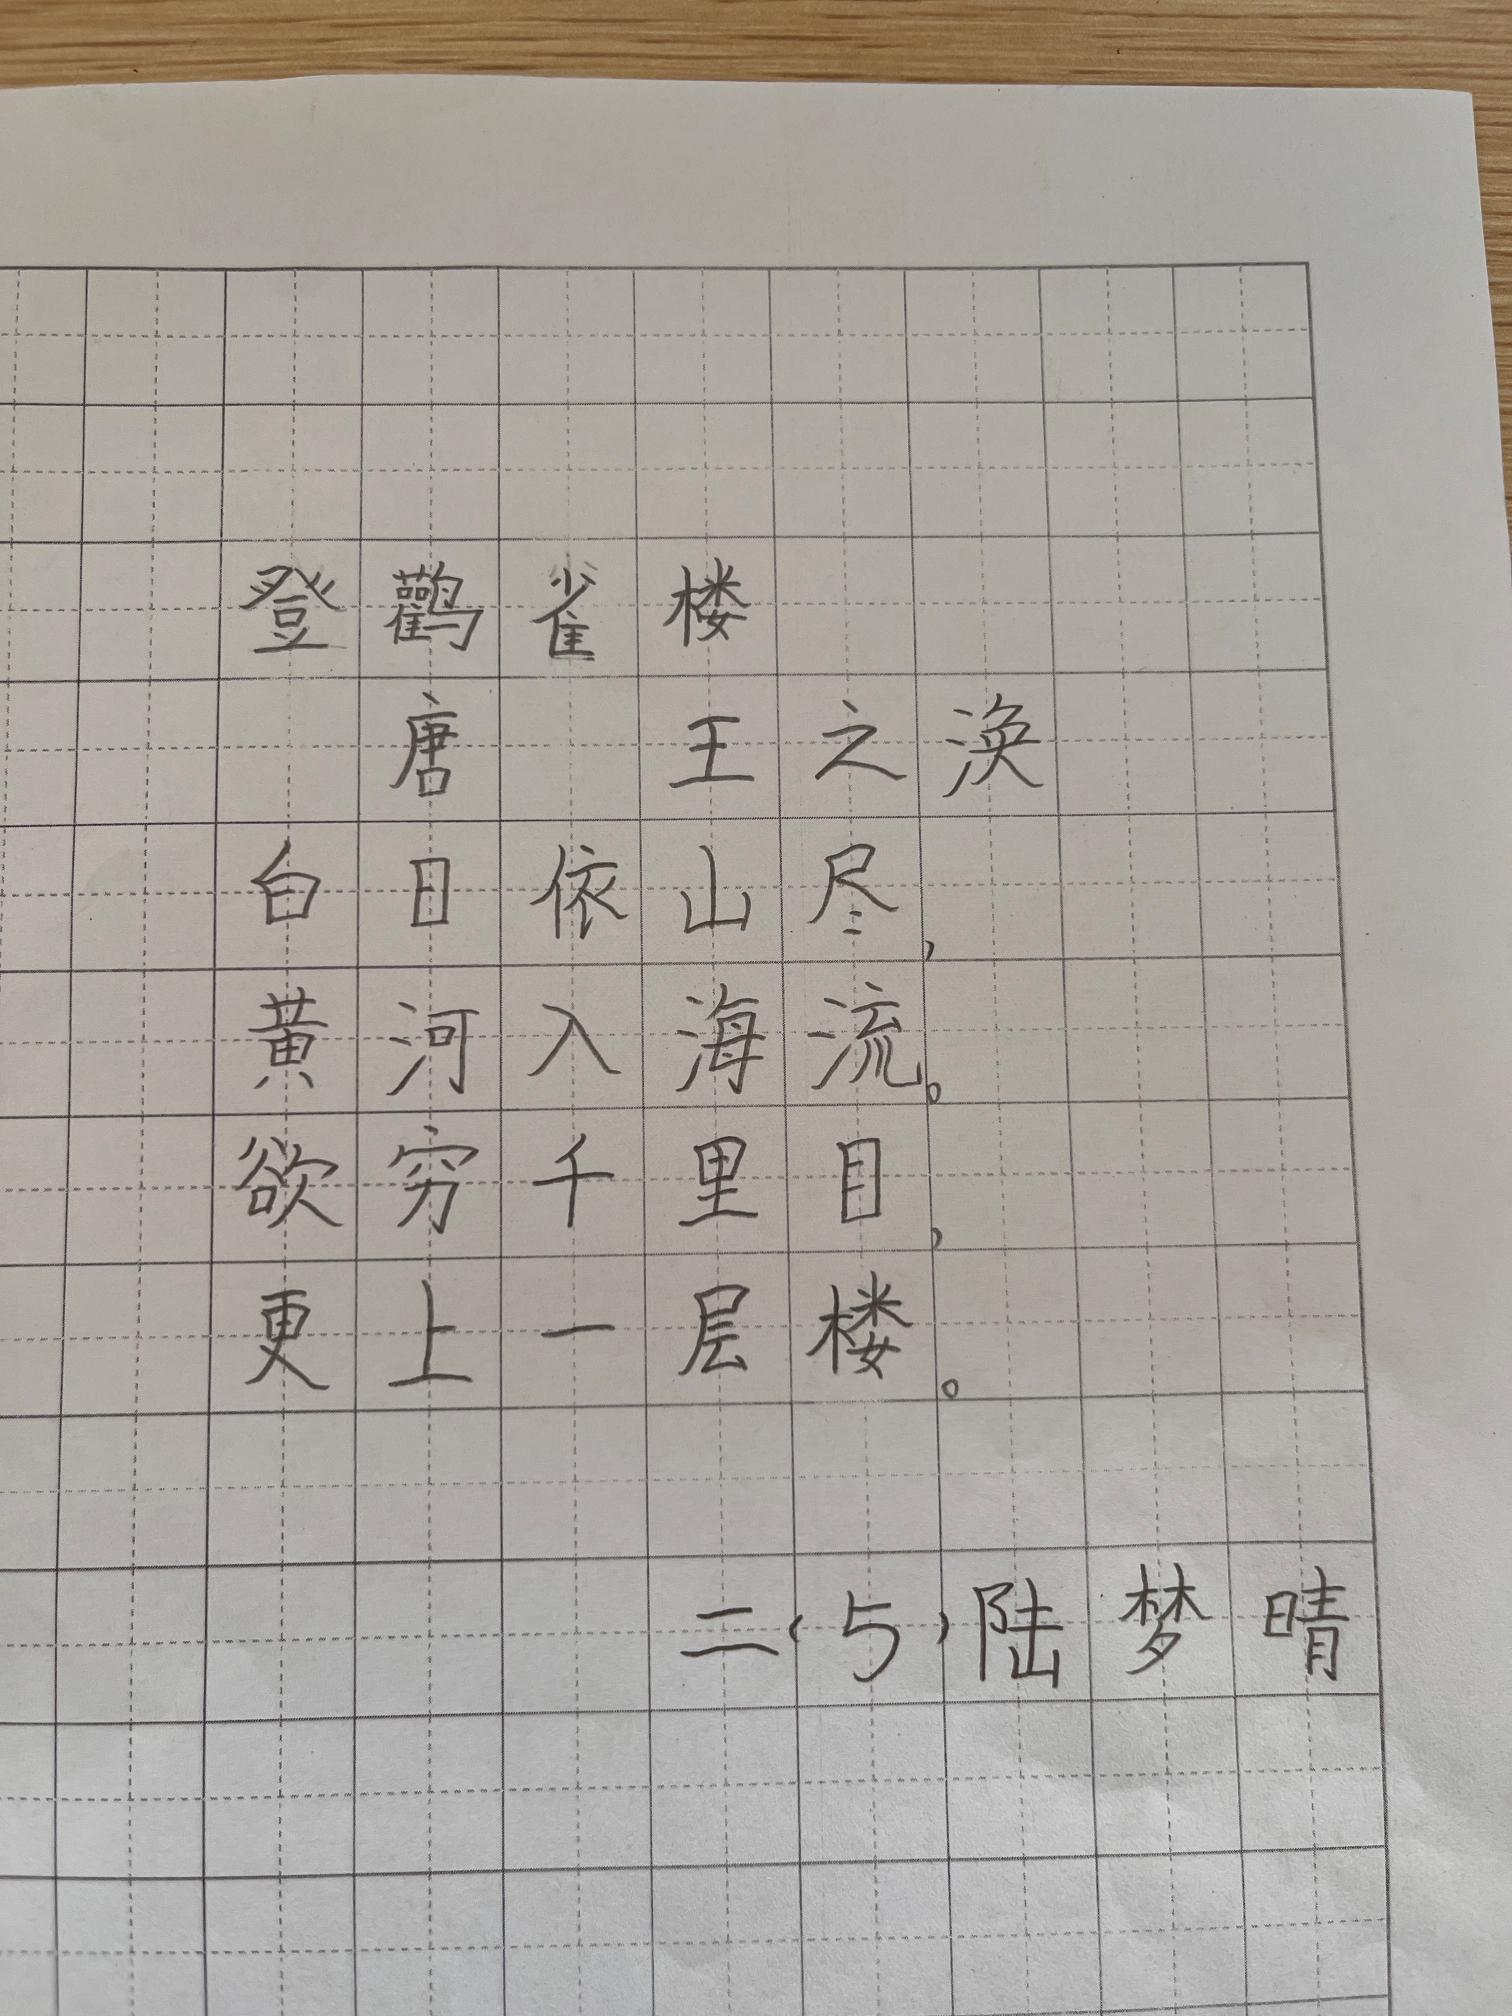 登鹳雀楼
唐 王之涣
白日依山尽，
黄河入海流。
欲穷千里目，
更上一层楼。
二（5）陆梦晴